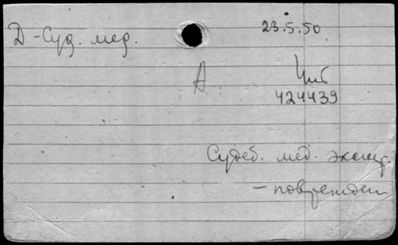 Д-Суд. мед. 23.5.50.
А Чит
424439
Судеб. мед. экспер.
– поврежден